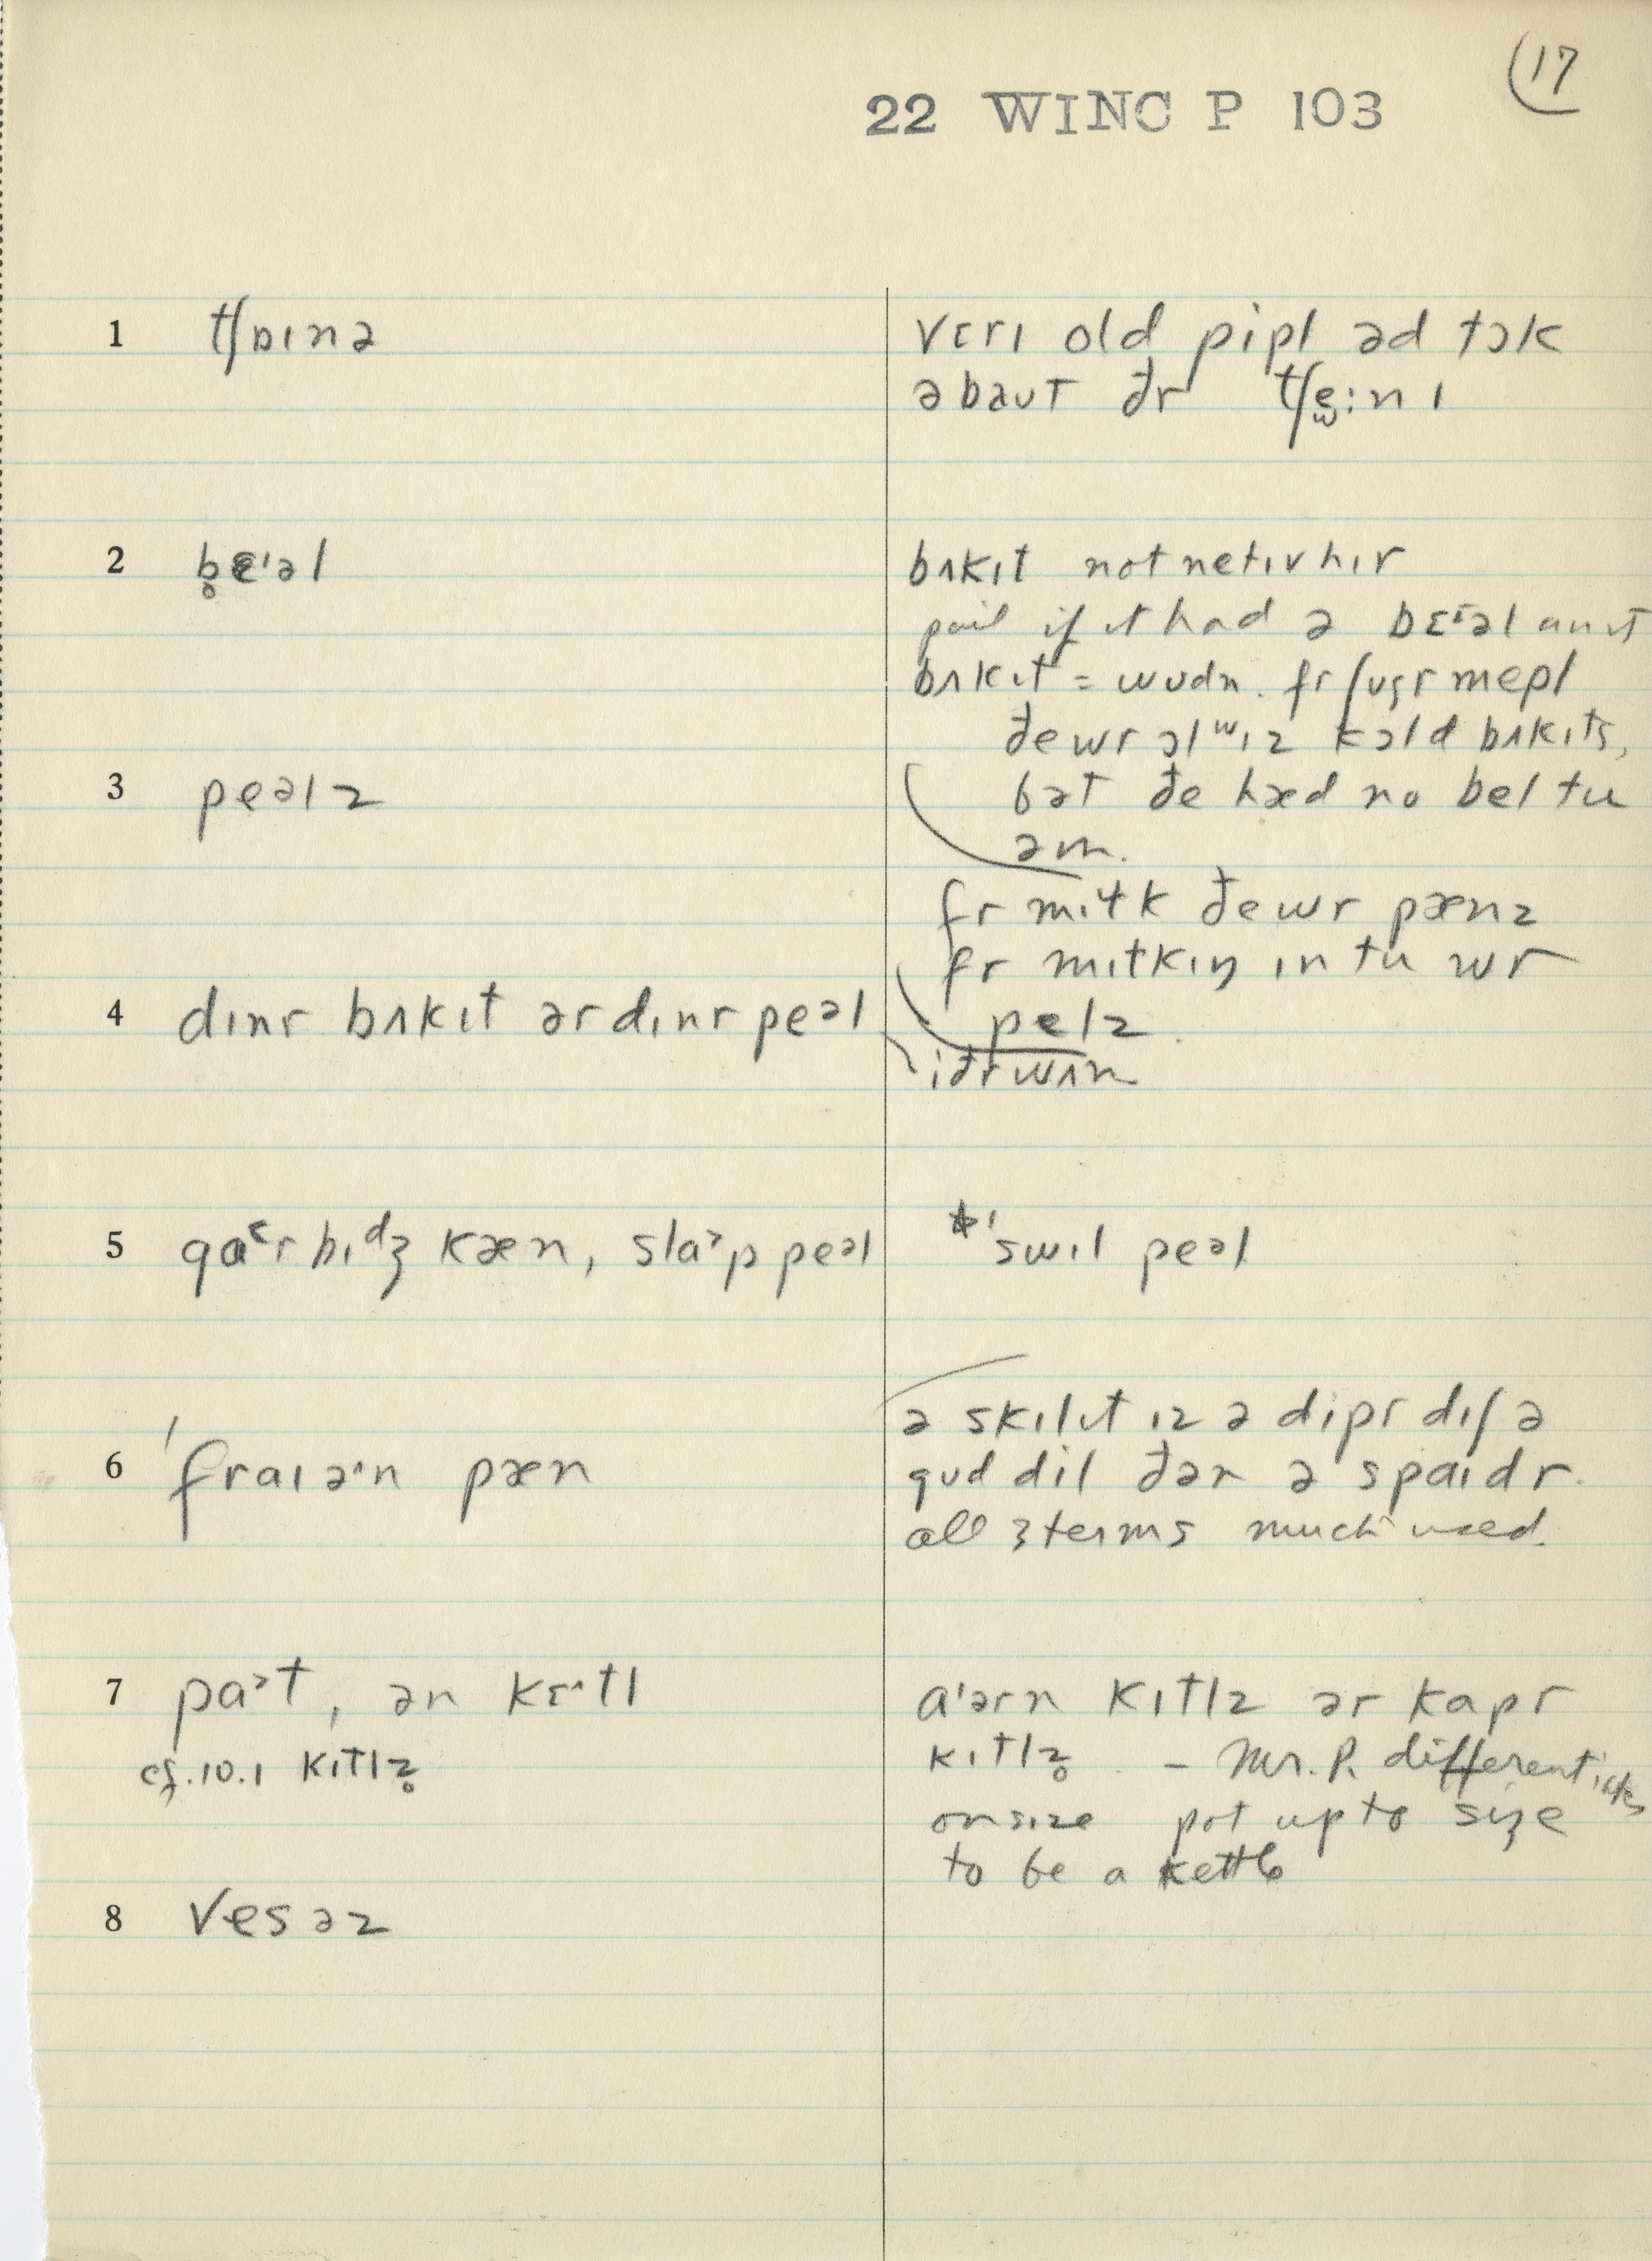 17
22 WINC P 103
1 tʃɒɪnə
vɛrɪ old pipl əd tɔk
əbaut ðr tʃe̫:nɪ
2 b̥ɛ'əl
bʌkɪt not netɪv hɪr
pail if it had ə bɛəl
bʌkɪt = wudn. fr ʃugr mepl
ðe wr ɔlʷɪz kɔld bʌkɪts,
3 peəlz
bət ðe hæd no bel tu
əm.
fr mɪɫk ðe wr pænz
fr mɪɫkɪŋ ɪntu wr
4 dɪnr bʌkɪt ər dɪnr peəl
pelz.
iðr wʌn
5 gaˤrbɪᵈʒ kæn, slaˀp peəl
*'swɪl peəl
6 'fraɪə˞n pæn
ə skɪlɪt ɪz ə dipr dɪʃ ə
gud dil ðən ə spaɪdr.
all 3 terms much used.
7 paˀt, ən kɛ˞tl
a'ərn kɪtlz ər kapr
cf. 10.1 kɪtlz̥
kɪtlz̥ – Mr. P. differentiates
on size pot up to size
to be a kettle
8 vesəz